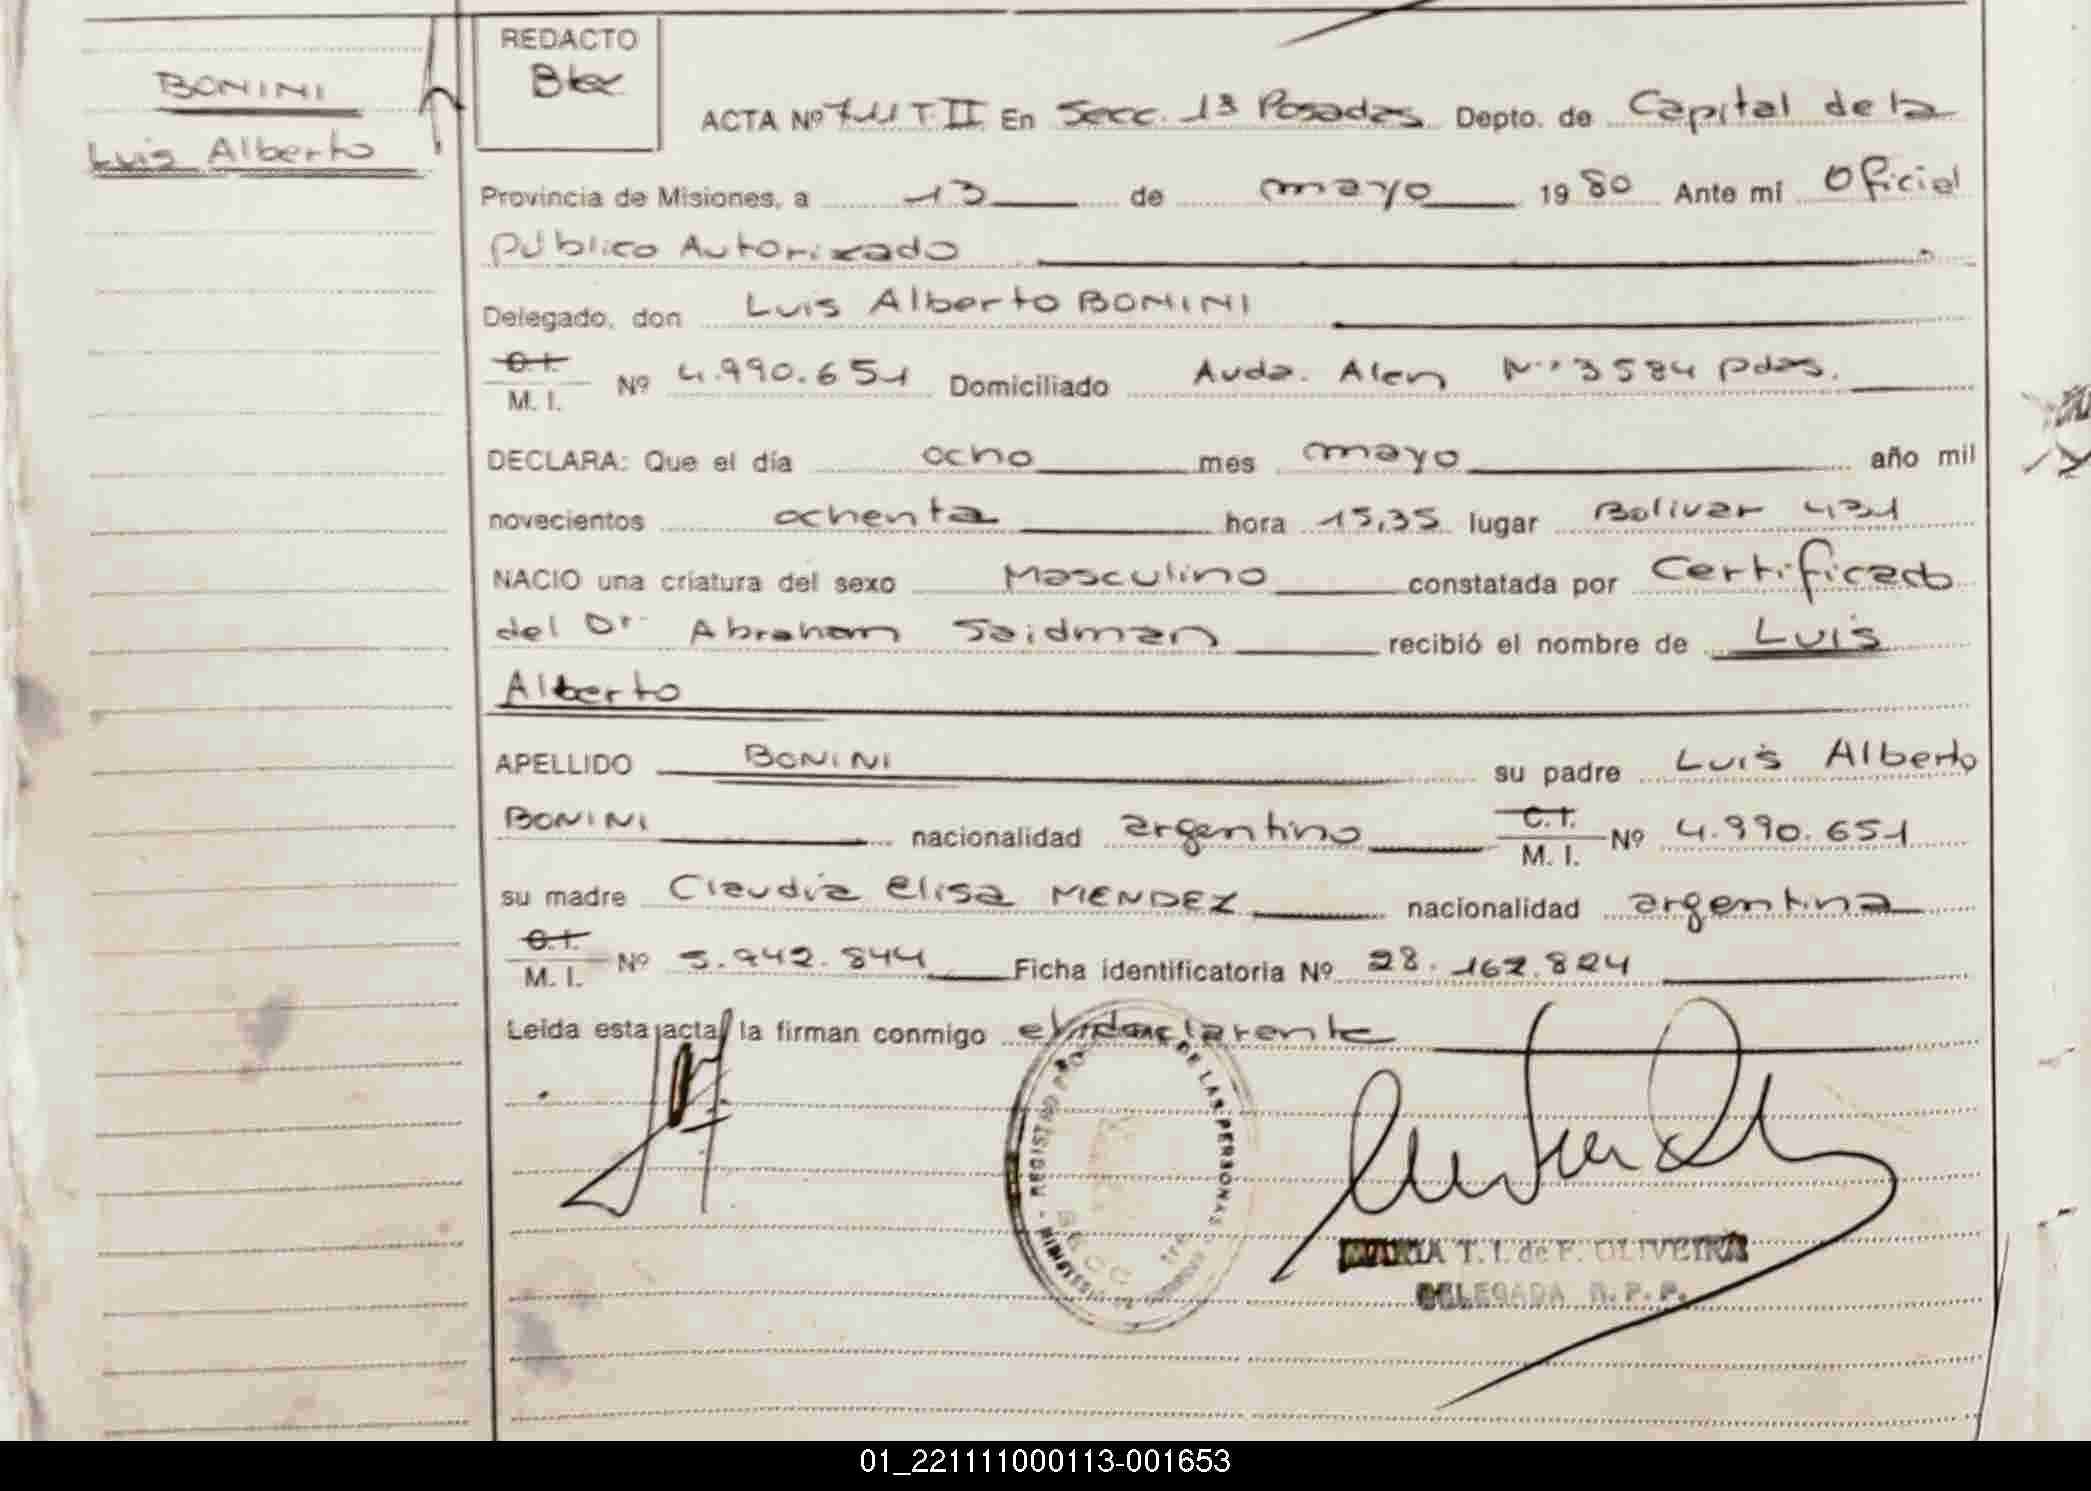 BONINI
Luis Alberto
REDACTO
ACTA Nº 711 T. II En Secc. 1ª Posadas Depto. de Capital de la
Provincia de Misiones, a 13 de mayo 1980 Ante mi Oficial
Público Autorizado
Delegado, don Luis Alberto BONINI
C.I.
M. I. Nº 4.990.651 Domiciliado Avda. Alen Nº 3584 pdas.
DECLARA: Que el día ocho mes mayo año mil
novecientos ochenta hora 15,35 lugar Bolivar 431
NACIO una criatura del sexo Masculino constatada por Certificado
del Dr. Abraham Saidman recibió el nombre de Luis
Alberto
APELLIDO BONINI su padre Luis Alberto
BONINI nacionalidad argentino C.I. M. I. Nº 4.990.651
su madre Claudia Elisa MENDEZ nacionalidad argentina
C.I.
M. I. Nº 5.942.844 Ficha identificatoria Nº 28.162.824
Leida esta acta la firman conmigo el declarente
REGISTRO PRO DE LAS PERSONAS
SECC
MARIA T. I. de F. OLIVEIRA
DELEGADA R. P. P.
01_221111000113-001653